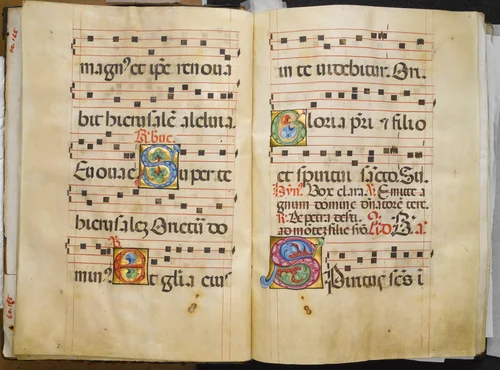 magn⁹ et ip̄e renoua
bit hierusalē alleluia.
R. breue.
Euouae Super te
hierusalez Orietū do
min⁹ R. Et glīa eius
in te uidebitur. Ori.
Gloria p̄ri et filio
et spiritui sācto Su.
Hyn⁹. Vox clara. V. Emitte a
gnum domine dnatorē terre.
R. De petra deserti
ad mōtez filie sỹo.
Spūtus scūs ī